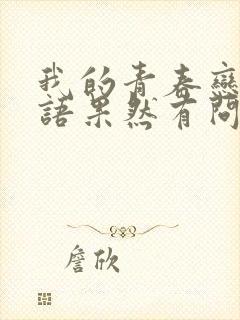 我的青春戀
語果然有問
詹欣